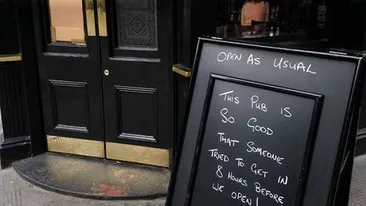 OPEN AS USUAL
THIS PUB IS
SO GOOD
THAT SOMEONE
TRIED TO GET IN
8 HOURS BEFORE
WE OPEN!